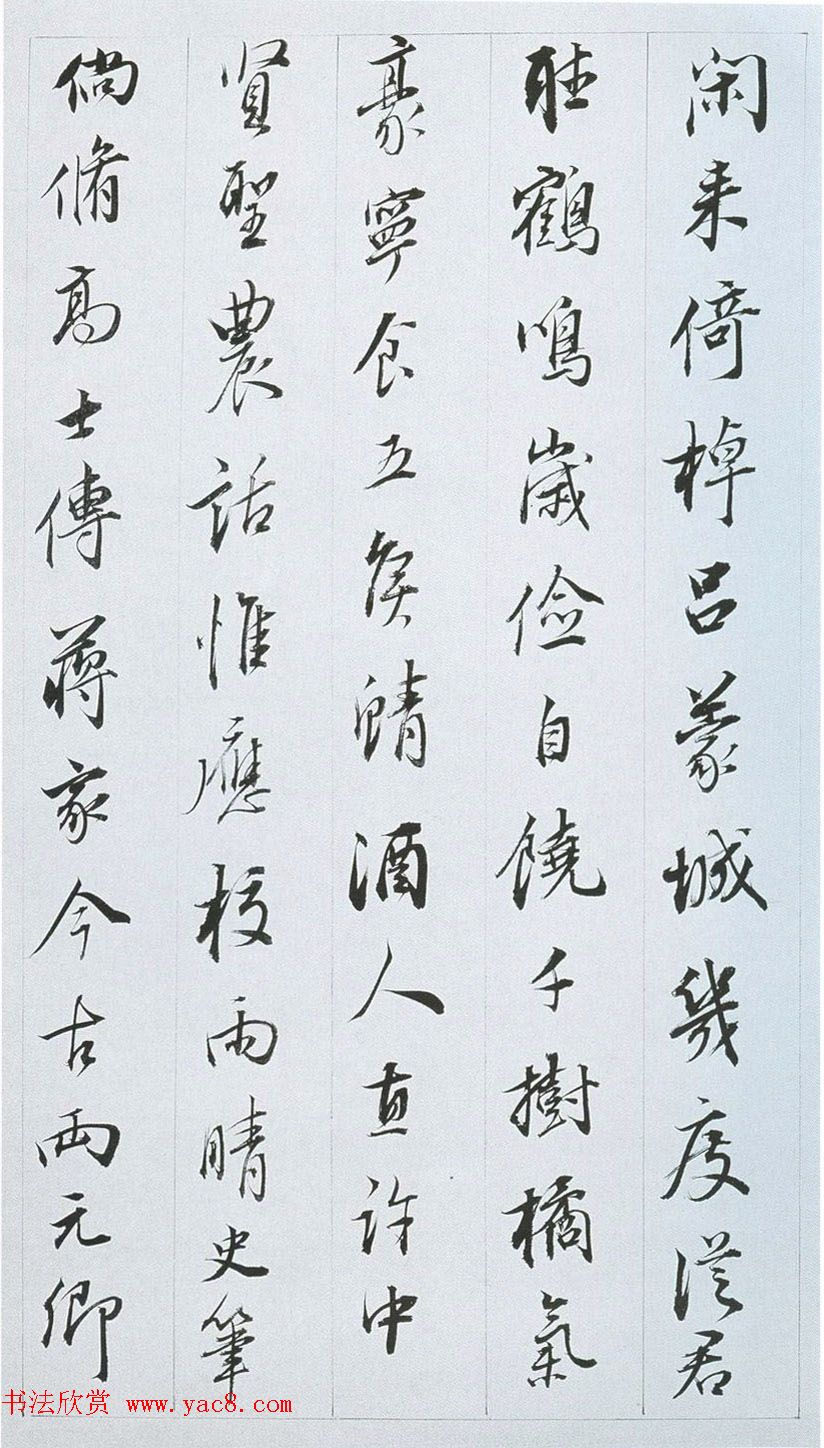 闲来倚棹吕蒙城幾度從君
聴鶴鳴歲儉自饒千樹橘氣
豪寧食五矦鯖酒人直許中
賢聖農話惟應校雨晴史筆
倘脩高士傳蔣家今古兩元卿
书法欣赏 www.yac8.com